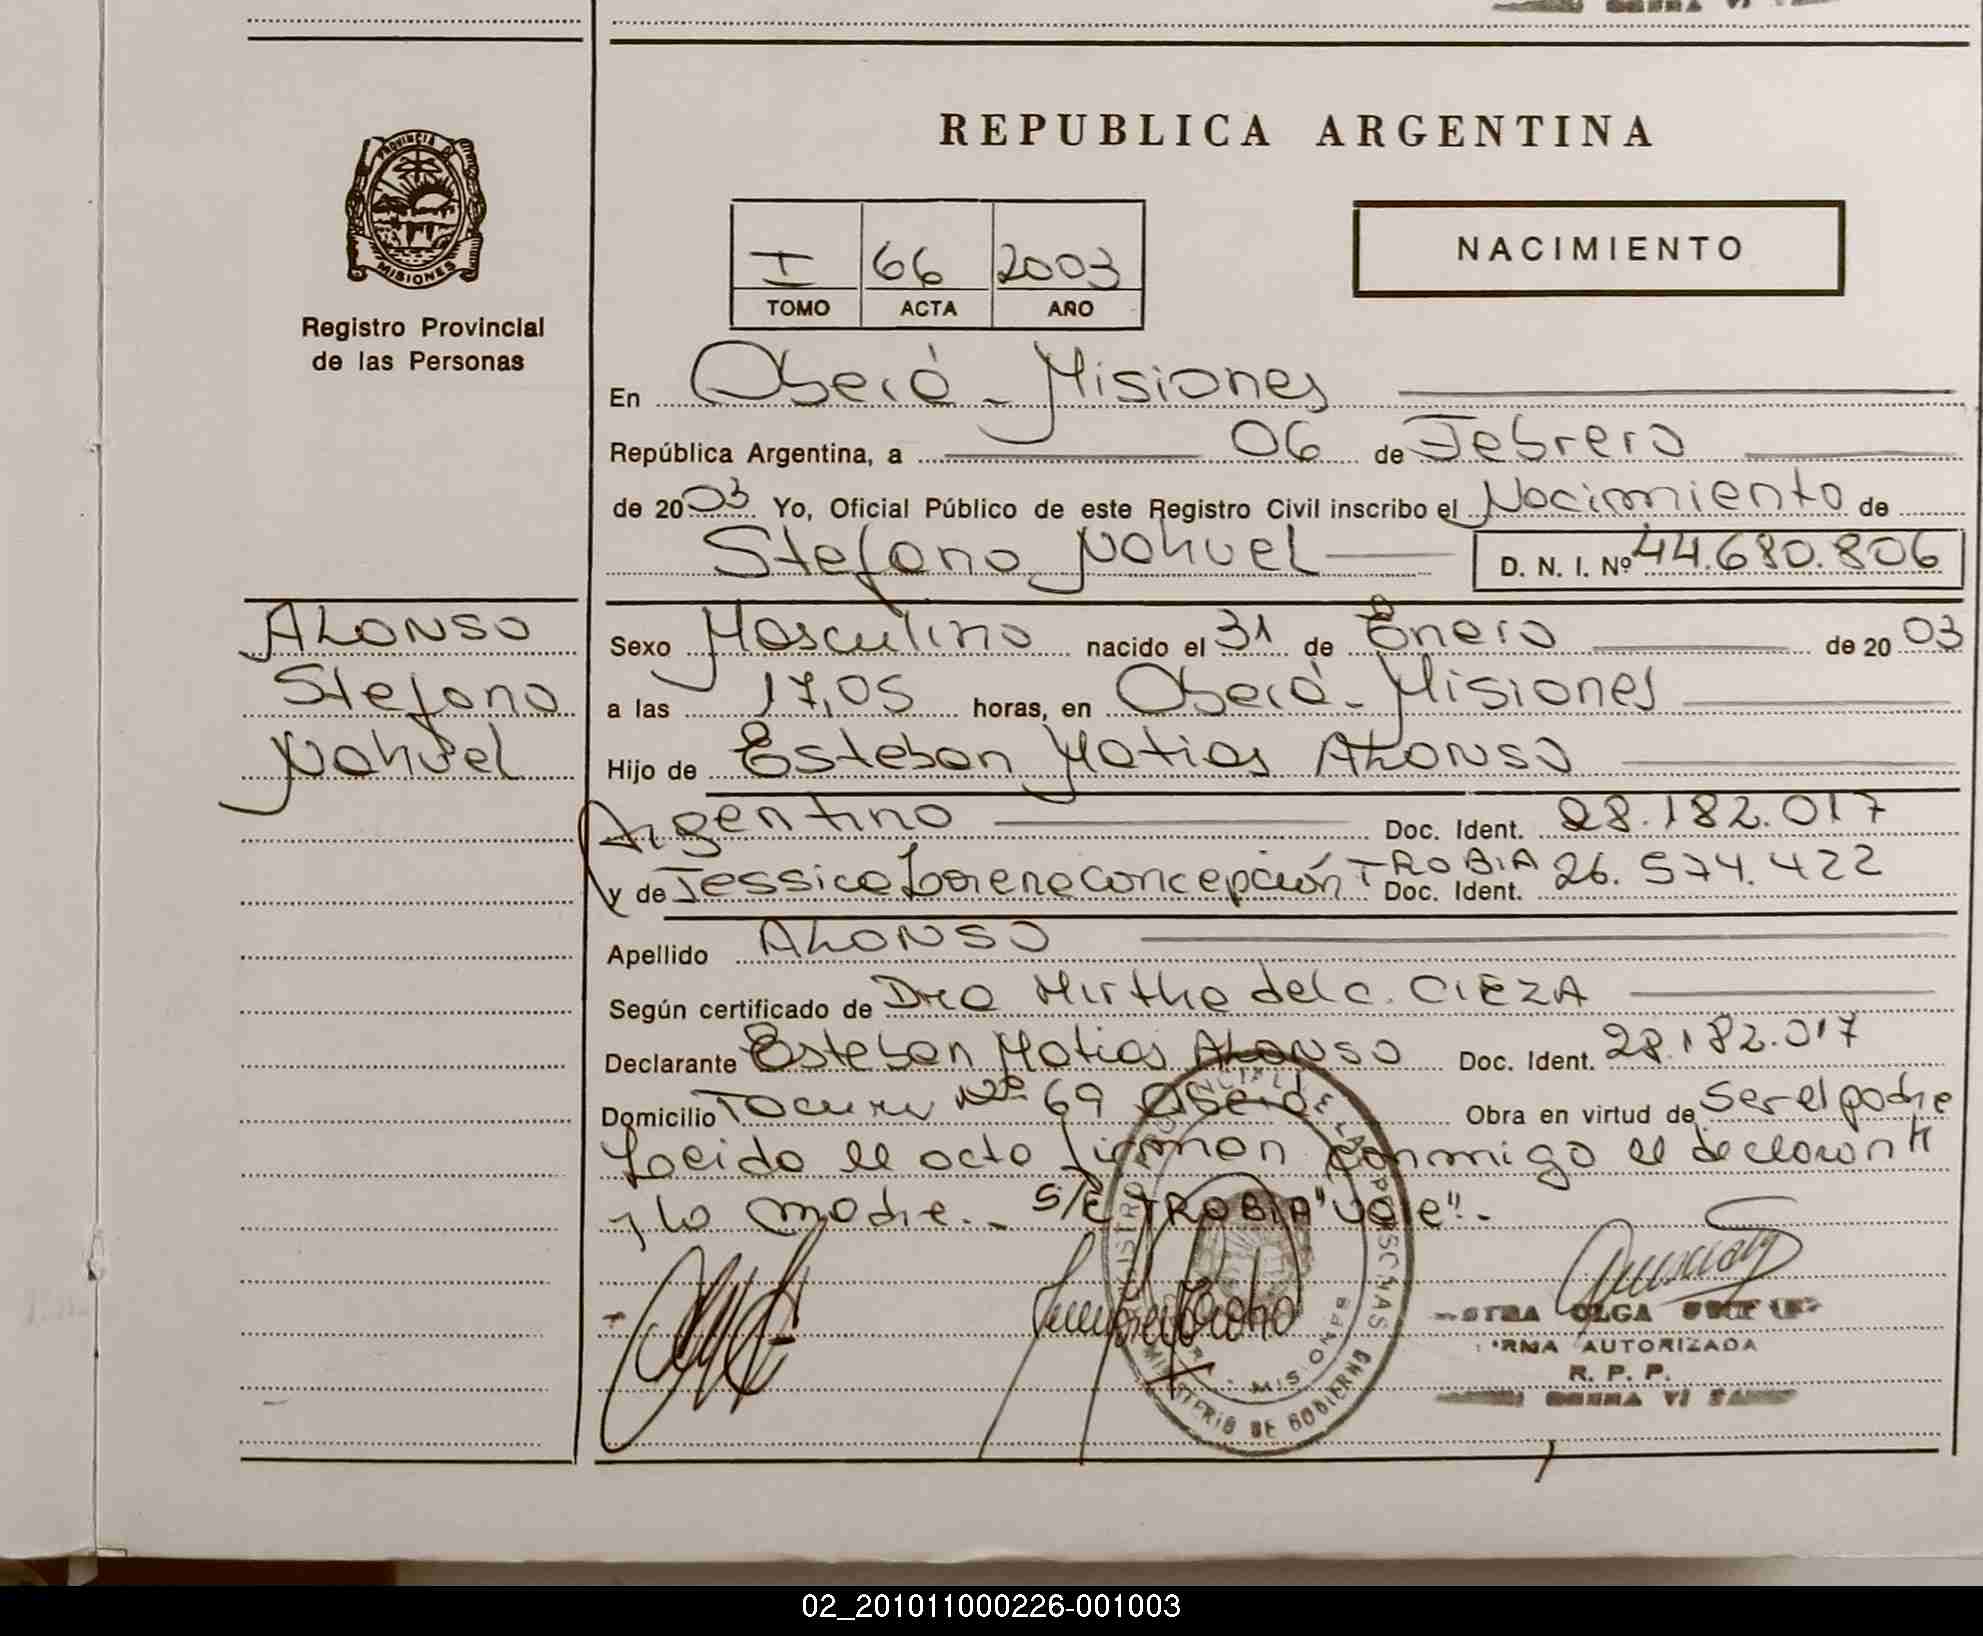 REPUBLICA ARGENTINA
PROVINCIA DE
MISIONES
Registro Provincial
de las Personas
I 66 2003
TOMO ACTA AÑO
NACIMIENTO
En Oberá - Misiones
República Argentina, a 06 de Febrero
de 2003 Yo, Oficial Público de este Registro Civil inscribo el Nacimiento de
Stefano Nahuel D. N. I. Nº 44.680.806
ALONSO
Stefano
Nahuel
Sexo Masculino nacido el 31 de Enero de 2003
a las 17,05 horas, en Oberá - Misiones
Hijo de Esteban Matias ALONSO
Argentino Doc. Ident. 28.182.017
y de Jessica Lorena Concepción TROBIA Doc. Ident. 26.574.422
Apellido ALONSO
Según certificado de Dra Mirtha del C. CIEZA
Declarante Esteban Matias ALONSO Doc. Ident. 28.182.017
Domicilio Tacuru Nº 69 Oberá Obra en virtud de ser el padre
Leido el acto firman conmigo el declarante
y la madre.- S/E TROBIA "Vale".-
OLGA
AUTORIZADA
R. P. P.
MINISTERIO DE GOBIERNO
MISIONES
02_201011000226-001003